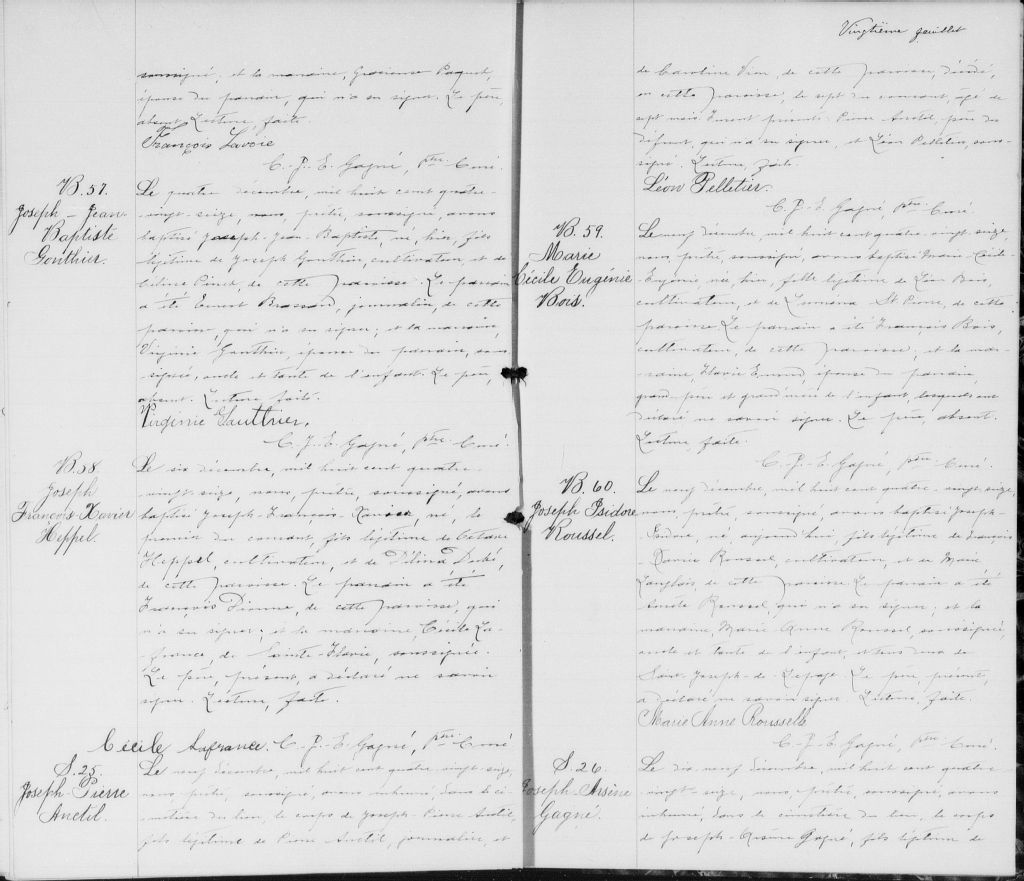 soussigné; et la marraine, Gracieuse Paquet,
épouse du parrain, qui n'a su signer. Le père,
absent. Lecture faite.
François Lavoie
C.-J.-E. Gagné, Ptre Curé.
B. 57.
Joseph-Jean-
Baptiste
Gonthier.
Le quatre décembre, mil huit cent quatre-
vingt-seize, nous, prêtre, soussigné, avons
baptisé Joseph-Jean-Baptiste, né, hier, fils
légitime de Joseph Gonthier, cultivateur, et de
Pinet, de cette paroisse. Le parrain
a été Ernest Brassard, journalier, de cette
paroisse, qui n'a su signer; et la marraine,
Virginie Gonthier, épouse du parrain, sous-
signée, oncle et tante de l'enfant. Le père,
absent. Lecture faite.
Virginie Gauthier.
C.-J.-E. Gagné, Ptre Curé.
B. 58.
Joseph
François-Xavier
Heppel.
Le six décembre, mil huit cent quatre-
vingt-seize, nous, prêtre, soussigné, avons
baptisé Joseph-François-Xavier, né, le
premier du courant, fils légitime de Octave
Heppel, cultivateur, et de Délina Dubé,
de cette paroisse. Le parrain a été
François Dionne, de cette paroisse, qui
n'a su signer; et la marraine, Cécile La-
france, de Sainte-Flavie, soussignée.
Le père, présent, a déclaré ne savoir
signer. Lecture faite.
Cécile Lafrance. C.-J.-E. Gagné, Ptre Curé
S. 25.
Joseph-Pierre
Anctil.
Le neuf décembre, mil huit cent quatre-vingt-seize,
nous, prêtre, soussigné, avons inhumé, dans le ci-
metière du lieu, le corps de Joseph-Pierre Anctil,
fils légitime de Pierre Anctil, journalier, et
Vingtième feuillet
de Caroline, de cette paroisse, décédé,
en cette paroisse, le sept du courant, âgé de
sept mois. Furent présents: Pierre Anctil, père du
défunt, qui n'a su signer, et Léon Pelletier, sous-
signé. Lecture faite.
Léon Pelletier.
C.-J.-E. Gagné, Ptre Curé.
B. 59.
Marie
Cécile Eugénie
Bois.
Le neuf décembre, mil huit cent quatre-vingt-seize,
nous, prêtre, soussigné, avons baptisé Marie-Cécile-
Eugénie, née, hier, fille légitime de Léon Bois,
cultivateur, et de Luména St Pierre, de cette
paroisse. Le parrain a été François Bois,
cultivateur, de cette paroisse; et la mar-
raine, Flavie, épouse du parrain,
grand-père et grand'mère de l'enfant, lesquels ont
déclaré ne savoir signer. Le père, absent.
Lecture faite.
C.-J.-E. Gagné, Ptre Curé.
B. 60.
Joseph Isidore
Roussel.
Le neuf décembre, mil huit cent quatre-vingt-seize,
nous, prêtre, soussigné, avons baptisé Joseph-
Isidore, né, aujourd'hui, fils légitime de François-
Xavier Roussel, cultivateur, et de Marie
Langlois, de cette paroisse. Le parrain a été
Roussel, qui n'a su signer; et la
marraine, Marie-Anne Roussel, soussignée,
oncle et tante de l'enfant, et tous deux de
Saint-Joseph-de-Lepage. Le père, présent,
a déclaré ne savoir signer. Lecture faite.
Marie Anne Roussells
C.-J.-E. Gagné, Ptre Curé.
S. 26.
Joseph-Arsène
Gagné.
Le dix-neuf décembre, mil huit cent quatre-
vingt-seize, nous, prêtre, soussigné, avons
inhumé, dans le cimetière du lieu, le corps
de Joseph-Arsène Gagné, fils légitime de